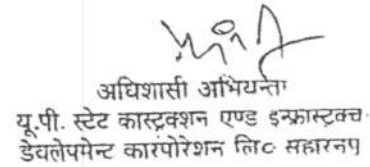 अधिशासी अभियन्ता
यू.पी. स्टेट कास्ट्रक्शन एण्ड इन्फ्रास्ट्रक्च
डेवलेपमेन्ट कारपोरेशन लि० सहारनपु